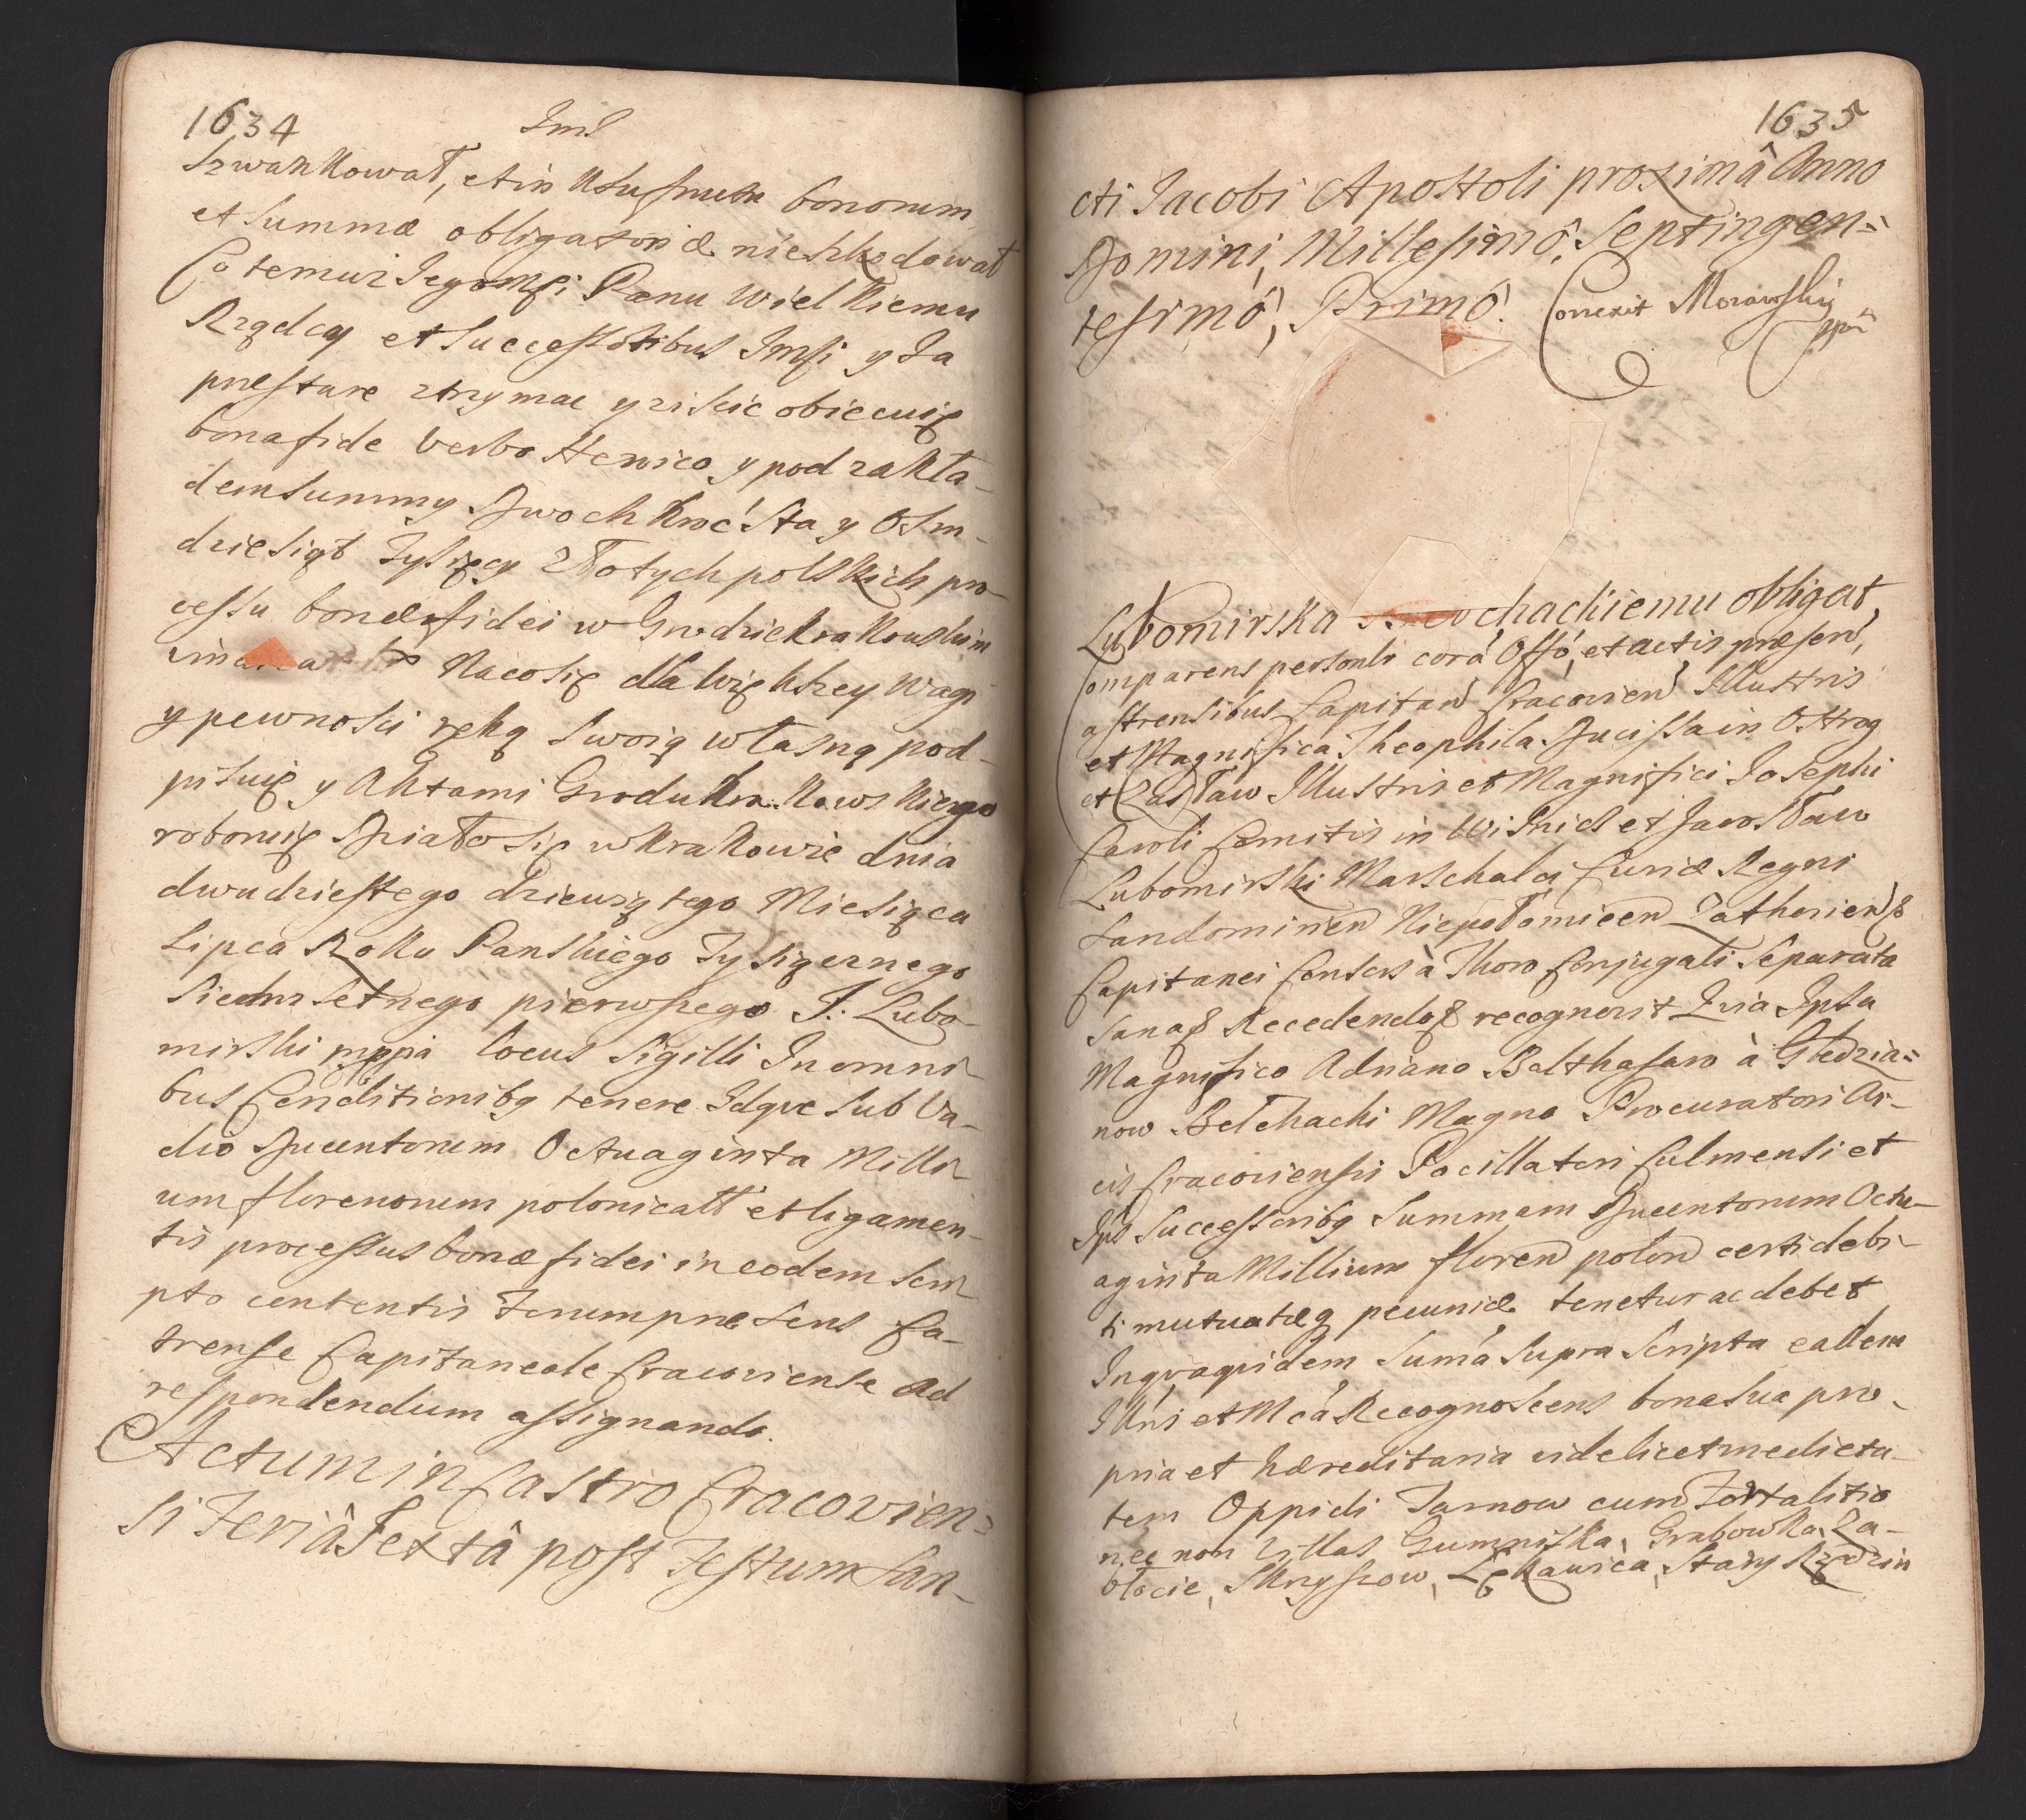 1634
Jms
szwankował, et in usufructu bonorum
et summæ obligatoriæ nieszkodował
Co temuż Jegomsci Panu Wielkiemu
Rządcy et Successoribus Jmsci y Ja
præstare ztrzymac y ziscic obiecuię
bona fide verbo Heroico, y pod zakła-
dem summy Dwoch kroć Sta y Osm-
dziesiąt Tysięcy Złotych polskich pro-
cessu bonæ fidei w Grodzie krakowskim
Nacosię dla większey wagi
y pewnosci ręką swoią własną pod-
pisuię y Aktami Grodu krakowskiego
roboruię Działo się w krakowie dnia
dwudziestego dziewiątego Miesiąca
Lipca Roku Panskiego Tysiącznego
Siedmsetnego pierwszego J: Lubo-
mirski mppa locus Sigilli In omni-
bus Conditionibq tenere Idque sub Va-
dio Ducentorum Octuaginta Milli-
um florenorum polonicalt et ligamen-
tis processus bonæ fidei in eodem scri-
pto contentis Forum præsens Ca-
trense Capitaneale Cracoviense ad
respondendum assignando.
Actum in Castro Cracovien=
si Feriâ Sextâ post Festum San-
1635
cti Jacobi Apostoli proximâ Anno
Domini, Millesimô, Septingen=
tesimô, Primô. Conexit Morawski
mppa
Lubomirska chackiemu obligat,
Comparens personlr corá Offó, et actis præsen,
astrensibus Capitan Cracovien Illustris
et Magnifica Theophila Ducissa in Ostrog
et Zasław Illustris et Magnifici Josephi
Caroli Comitis in Wisnicz et Jarosław
Lubomirski Marschalci Curiæ Regni
Sandomirien Niepołomicen Zathorien
Capitanei Consors à Thoro Conjugali Separata
Sana Recedendo recognovit Quia Ipsa
Magnifico Adriano Balthasaro à Głedzia=
now Bełchacki Magno Procuratori Ar-
cis Cracoviensis Pocillatori Culmensi et
Ips Successoribq Summam Ducentorum Octu-
aginta Millium floren polon certi debi-
ti mutuatæq pecuniæ tenetur ac debet
In qvaqvidem Sumá supra scripta eadem
Illris et Mcá Recognoscens bona sua pro-
pria et hæreditaria videlicet medieta-
tem Oppidi Tarnow cum Fortalitio
nec non villas Gumniska, Grabowka, Za-
błocie, Skrzyszow, Łękawica, Stary Rzędzin